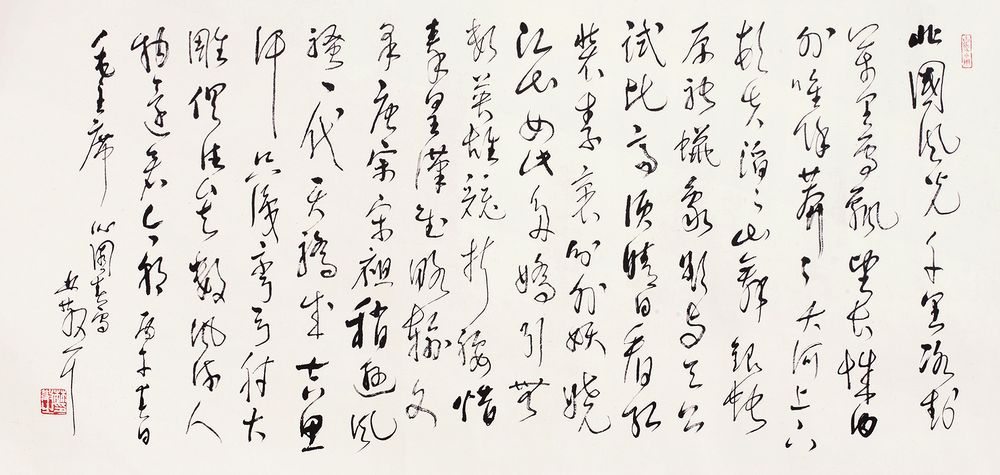 北國風光千里冰封
萬里雪飄望長城內
外唯餘莽〻大河上下
頓失滔〻山舞銀蛇
原馳蠟象欲與天公
試比高須晴日看紅
裝素裹分外妖嬈
江山如此多嬌引無
數英雄競折腰惜
秦皇漢武略輸文
采唐宗宋祖稍遜風
騷一代天驕成吉思
汗只識彎弓射大
雕俱往矣數風流人
物還看今朝 丙午春日
毛主席 沁園春雪
散耳